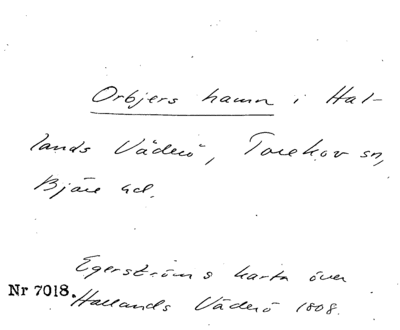 Orbjers hamn i Hal-
lands Väderö, Torekov sn,
Bjäre hd.
Egerströms karta över
Nr 7018. Hallands Väderö 1808.